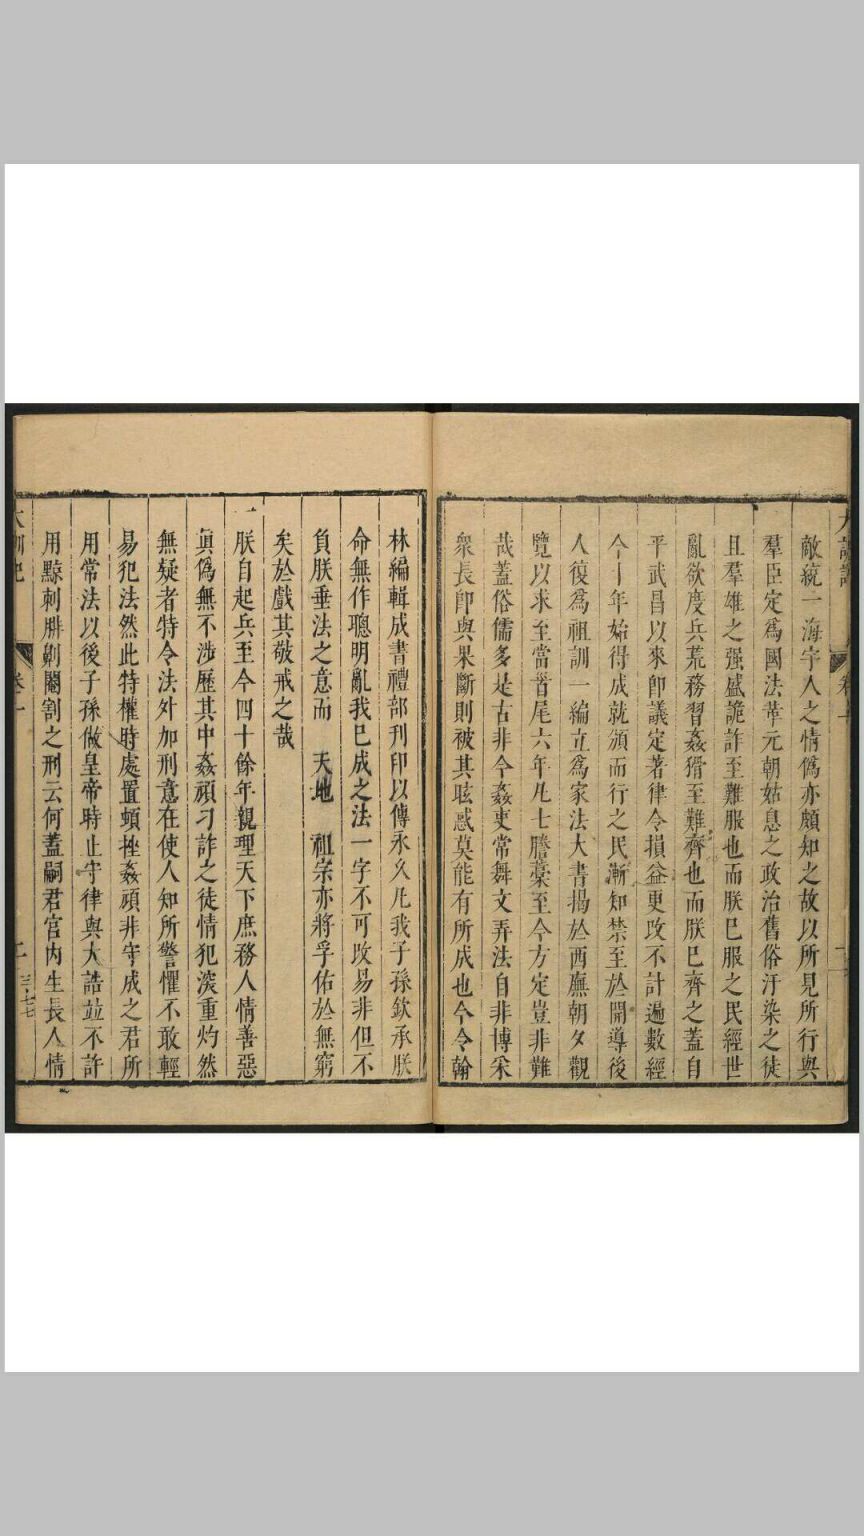 敵統一海宇人之情僞亦頗知之故以所見所行與
羣臣定爲國法革元朝姑息之政治舊俗汙染之徒
且羣雄之强盛詭詐至難服也而朕巳服之民經世
亂欲度兵荒務習姦猾至難齊也而朕巳齊之蓋自
平武昌以來卽議定著律令損益更改不計遍數經
今十年始得成就頒而行之民漸知禁至於開導後
人復爲祖訓一編立爲家法大書揭於西廡朝夕觀
覽以求至當首尾六年凡七謄藁至今方定豈非難
哉蓋俗儒多是古非今姦吏常舞文弄法自非博采
衆長卽與果斷則被其眩惑莫能有所成也今令翰
林編輯成書禮部刊印以傳永久凡我子孫欽承朕
命無作聰明亂我巳成之法一字不可改易非但不
負朕垂法之意而 天地 祖宗亦將孚佑於無窮
矣於戲其敬戒之哉
一朕自起兵至今四十餘年親理天下庶務人情善惡
眞僞無不涉歷其中姦頑刁詐之徒情犯深重灼然
無疑者特令法外加刑意在使人知所警懼不敢輕
易犯法然此特權時處置頓挫姦頑非守成之君所
用常法以後子孫做皇帝時止守律與大誥並不許
用黥刺腓劓閹割之刑云何蓋嗣君宫内生長人情
卷一